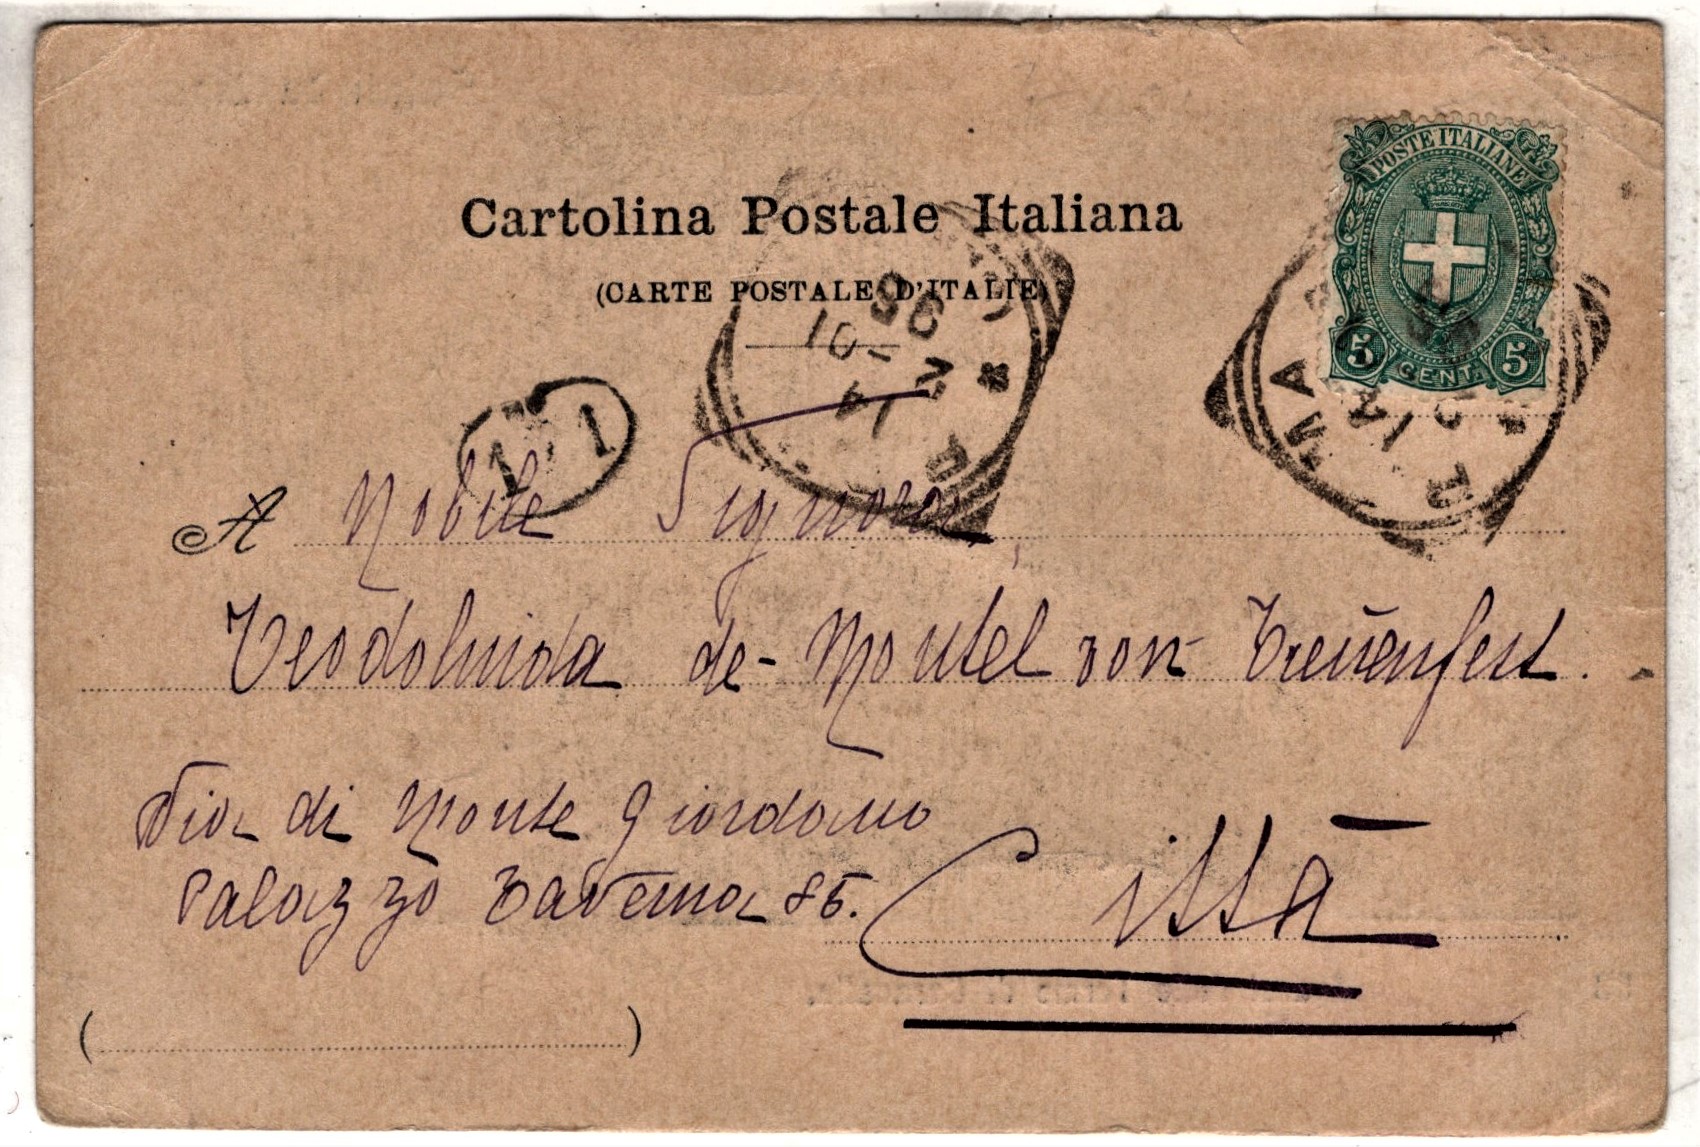 Cartolina Postale Italiana
(CARTE POSTALE D'ITALIE)
POSTE ITALIANE
5 CENT. 5
98
10 - 2
14
ROMA
1 1
A Nobile Signora,
Teodolinda de-Montel von Treuenfest.
Via di Monte Giordano
Palazzo Taverna 85.
Città
( )